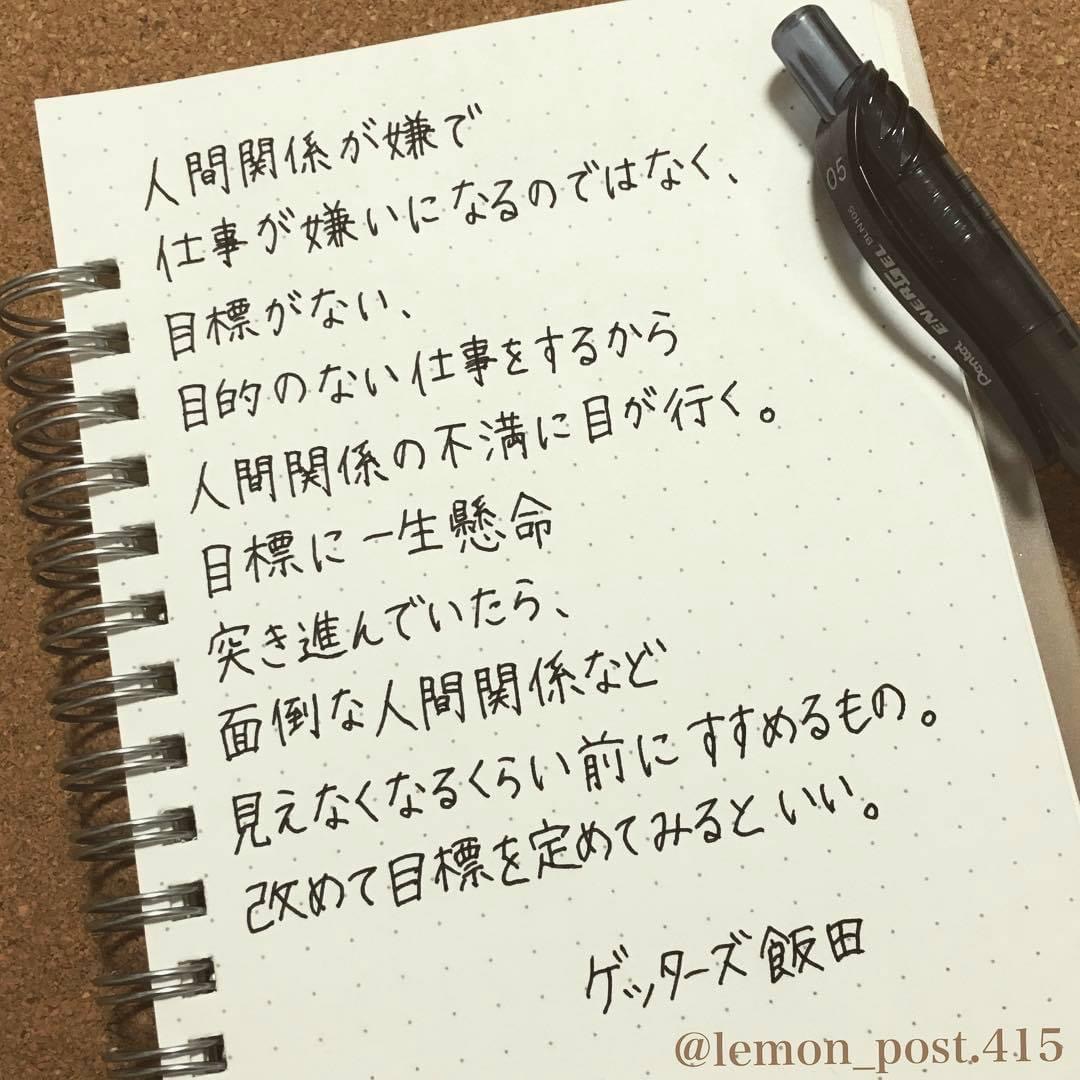 人間関係が嫌で
仕事が嫌いになるのではなく、
目標がない、
目的のない仕事をするから
人間関係の不満に目が行く。
目標に一生懸命
突き進んでいたら、
面倒な人間関係など
見えなくなるくらい前にすすめるもの。
改めて目標を定めてみるといい。
ゲッターズ飯田
05
Pentel ENERGEL BLN105
@lemon_post.415